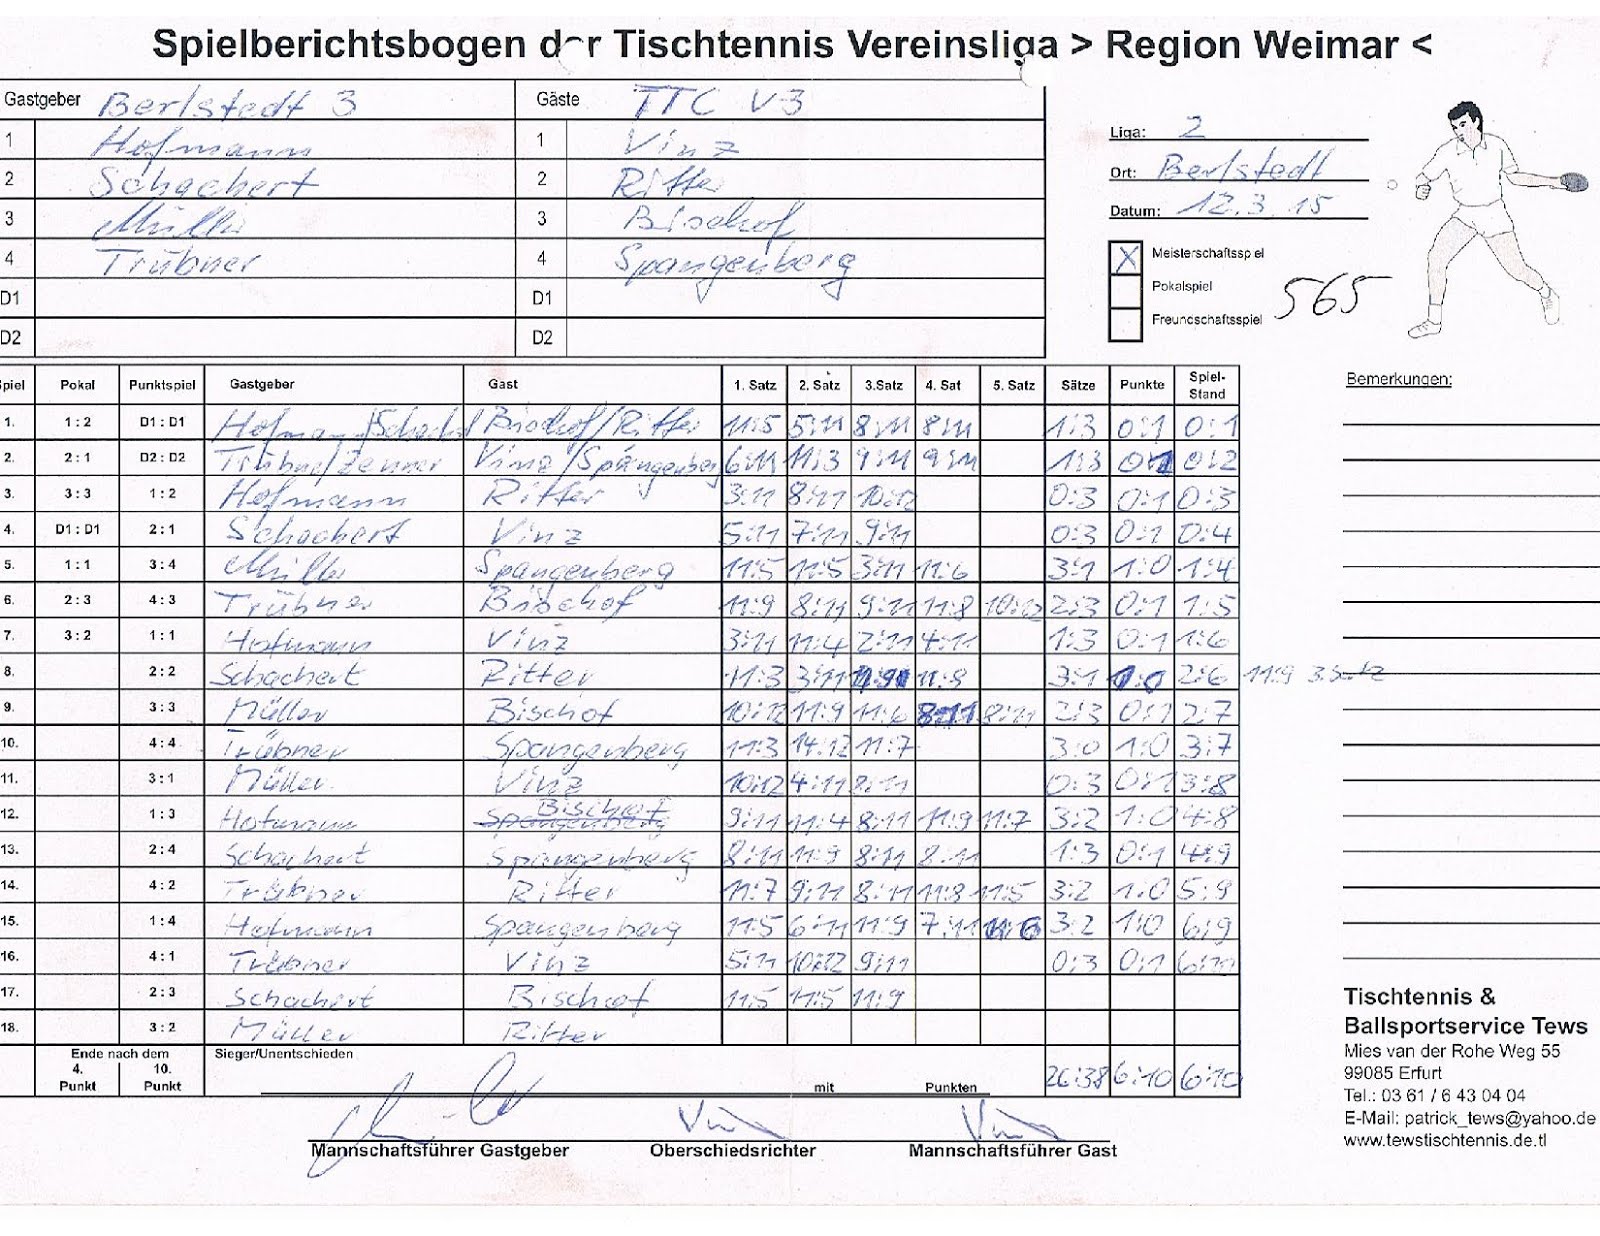 Spielberichtsbogen der Tischtennis Vereinsliga > Region Weimar <
Gastgeber Berlstedt 3 Gäste TTC V3
1 Hofmann 1 Vinz
2 Schachert 2 Ritter
3 Müller 3 Bischof
4 Trübner 4 Spangenberg
D1 D1
D2 D2
Liga: 2
Ort: Berlstedt
Datum: 12.3.15
X Meisterschaftsspiel
Pokalspiel
Freundschaftsspiel
565
Bemerkungen:
Spiel Pokal Punktspiel Gastgeber Gast 1. Satz 2. Satz 3.Satz 4. Sat 5. Satz Sätze Punkte Spiel-Stand
1. 1 : 2 D1 : D1 Hofmann/Schachert Bischof/Ritter 11:5 5:11 8:11 8:11 1:3 0:1 0:1
2. 2 : 1 D2 : D2 Trübner/Zenner Vinz/Spangenberg 6:11 11:3 9:11 9:11 1:3 0:1 0:2
3. 3 : 3 1 : 2 Hofmann Ritter 3:11 8:11 10:12 0:3 0:1 0:3
4. D1 : D1 2 : 1 Schachert Vinz 5:11 7:11 9:11 0:3 0:1 0:4
5. 1 : 1 3 : 4 Müller Spangenberg 11:5 11:5 3:11 11:6 3:1 1:0 1:4
6. 2 : 3 4 : 3 Trübner Bischof 11:9 8:11 9:11 11:8 10:12 2:3 0:1 1:5
7. 3 : 2 1 : 1 Hofmann Vinz 3:11 11:4 2:11 4:11 1:3 0:1 1:6
8. 2 : 2 Schachert Ritter 11:3 3:11 11:9 11:8 3:1 1:0 2:6 11:9 3.Satz
9. 3 : 3 Müller Bischof 10:12 11:9 11:6 8:11 8:11 2:3 0:1 2:7
10. 4 : 4 Trübner Spangenberg 11:3 14:12 11:7 3:0 1:0 3:7
11. 3 : 1 Müller Vinz 10:12 4:11 8:11 0:3 0:1 3:8
12. 1 : 3 Hofmann Spangenberg Bischof 9:11 11:4 8:11 11:9 11:7 3:2 1:0 4:8
13. 2 : 4 Schachert Spangenberg 8:11 11:9 8:11 8:11 1:3 0:1 4:9
14. 4 : 2 Trübner Ritter 11:7 9:11 8:11 11:8 11:5 3:2 1:0 5:9
15. 1 : 4 Hofmann Spangenberg 11:5 6:11 11:9 7:11 11:6 3:2 1:0 6:9
16. 4 : 1 Trübner Vinz 5:11 10:12 9:11 0:3 0:1 6:10
17. 2 : 3 Schachert Bischof 11:5 11:5 11:9
18. 3 : 2 Müller Ritter
Ende nach dem
4. Punkt 10. Punkt
Sieger/Unentschieden mit Punkten 26:38 6:10 6:10
Mannschaftsführer Gastgeber Oberschiedsrichter Mannschaftsführer Gast
Tischtennis &
Ballsportservice Tews
Mies van der Rohe Weg 55
99085 Erfurt
Tel.: 03 61 / 6 43 04 04
E-Mail: patrick_tews@yahoo.de
www.tewstischtennis.de.tl